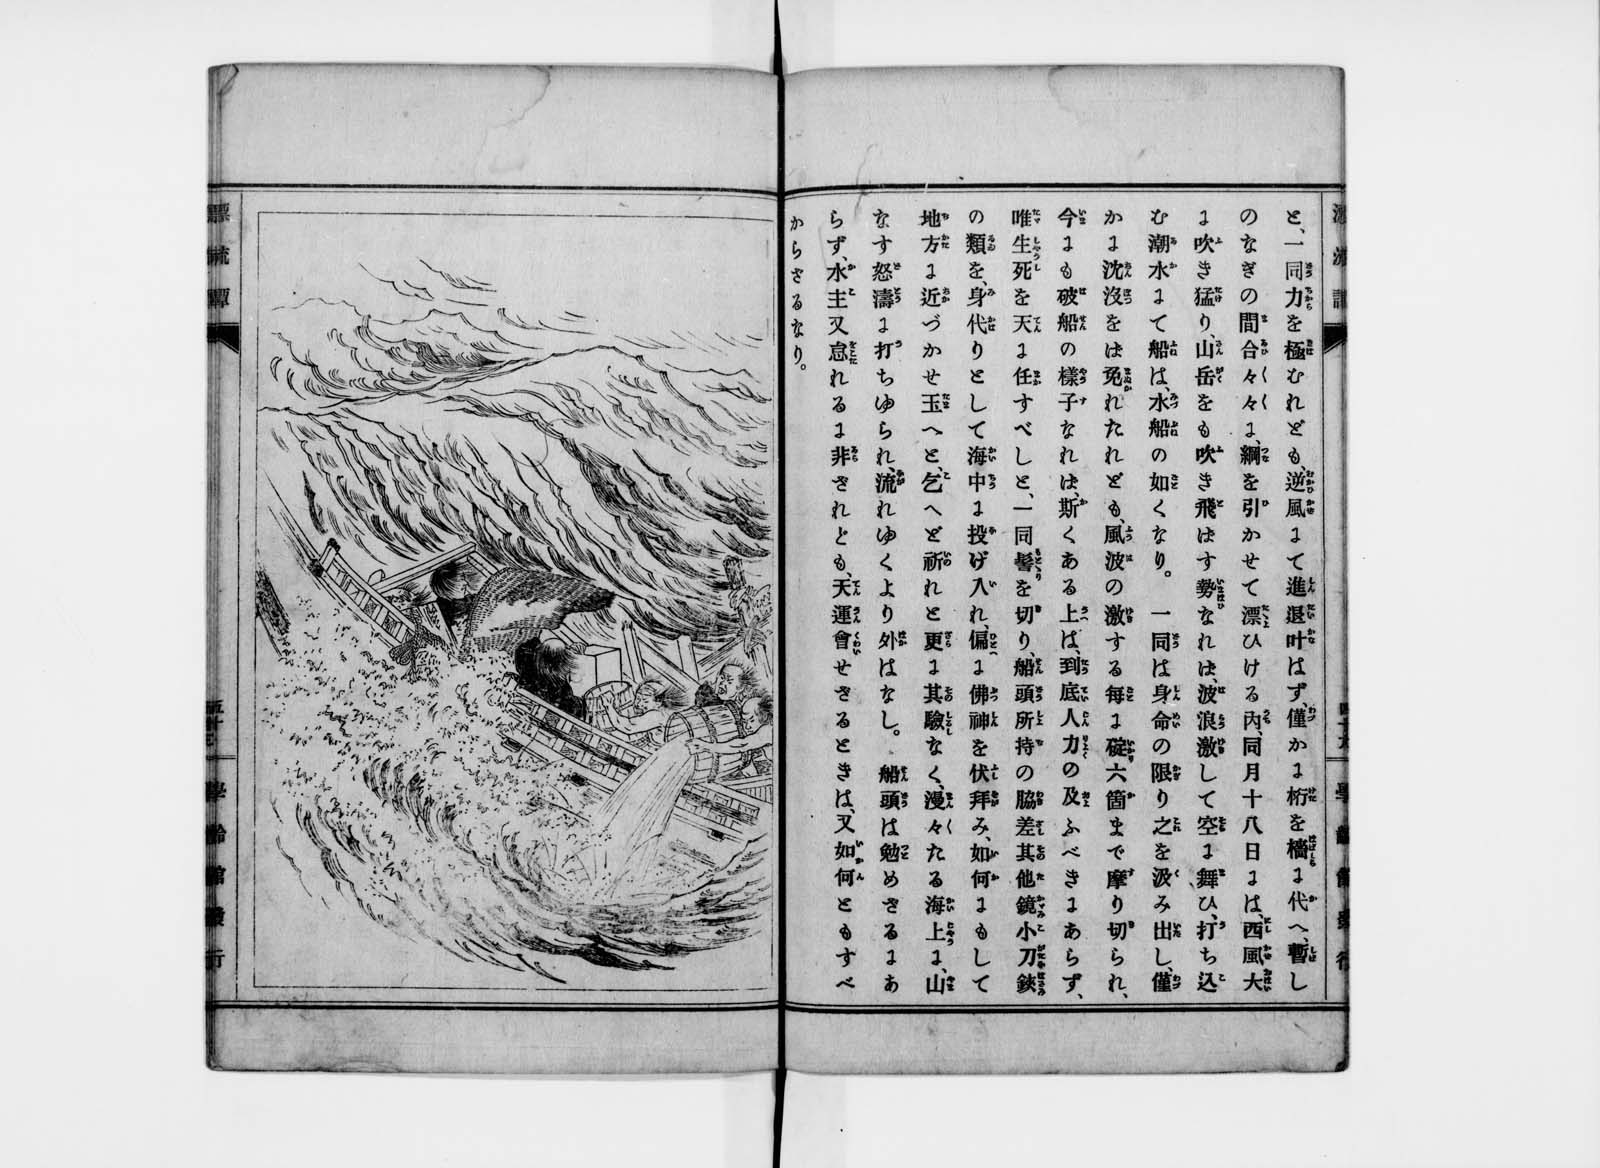 と、一同力を極むれども、逆風にて進退叶はず、僅かに桁を檣に代へ、暫し
のなぎの間合々々に、綱を引かせて漂ひける内、同月十八日には、西風大
に吹き猛り、山岳をも吹き飛はす勢なれは、波浪激して空に舞ひ、打ち込
む潮水にて船は、水船の如くなり。一同は身命の限り之を汲み出し、僅
かに沈沒をは免れたれども、風波の激する每に碇六箇まで摩り切られ、
今にも破船の樣子なれは、斯くある上は、到底人力の及ふべきにあらず、
唯生死を天に任すべしと、一同髻を切り、船頭所持の脇差其他鏡小刀鋏
の類を、身代りとして海中に投げ入れ、偏に佛神を伏拜み、如何にもして
地方に近づかせ玉へと、乞へど祈れと更に其驗なく、漫々たる海上に、山
なす怒濤に打ちゆられ、流れゆくより外はなし。船頭は勉めざるにあ
らず、水主又怠れるに非ざれとも、天運會せざるときは、又如何ともすべ
からざるなり。
漂流譚
五十三
學齡館發行